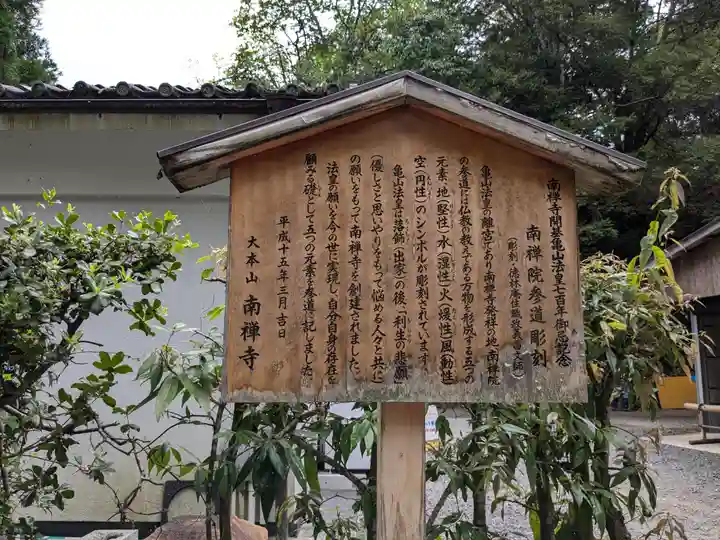 南禅寺開基亀山法皇七百年御忌記念
南禅院参道彫刻
亀山法皇の離宮であり、南禅寺発祥の地、南禅院
の参道には仏教の教えである万物を形成する五つの
元素、地(堅性)水(湿性)火(煖性)風(動性)
空(円性)のシンボルが彫刻されています。
亀山法皇は落飾(出家)の後、「利生の悲願」
(優しさと思いやりをもって悩める人々と共に)
の願いをもって南禅寺を創建されました。
法皇の願いを今の世に実現し、自分自身の存在を
顧みる礎として五つの元素を参道に記しました。
平成十五年三月吉日
大本山 南禅寺